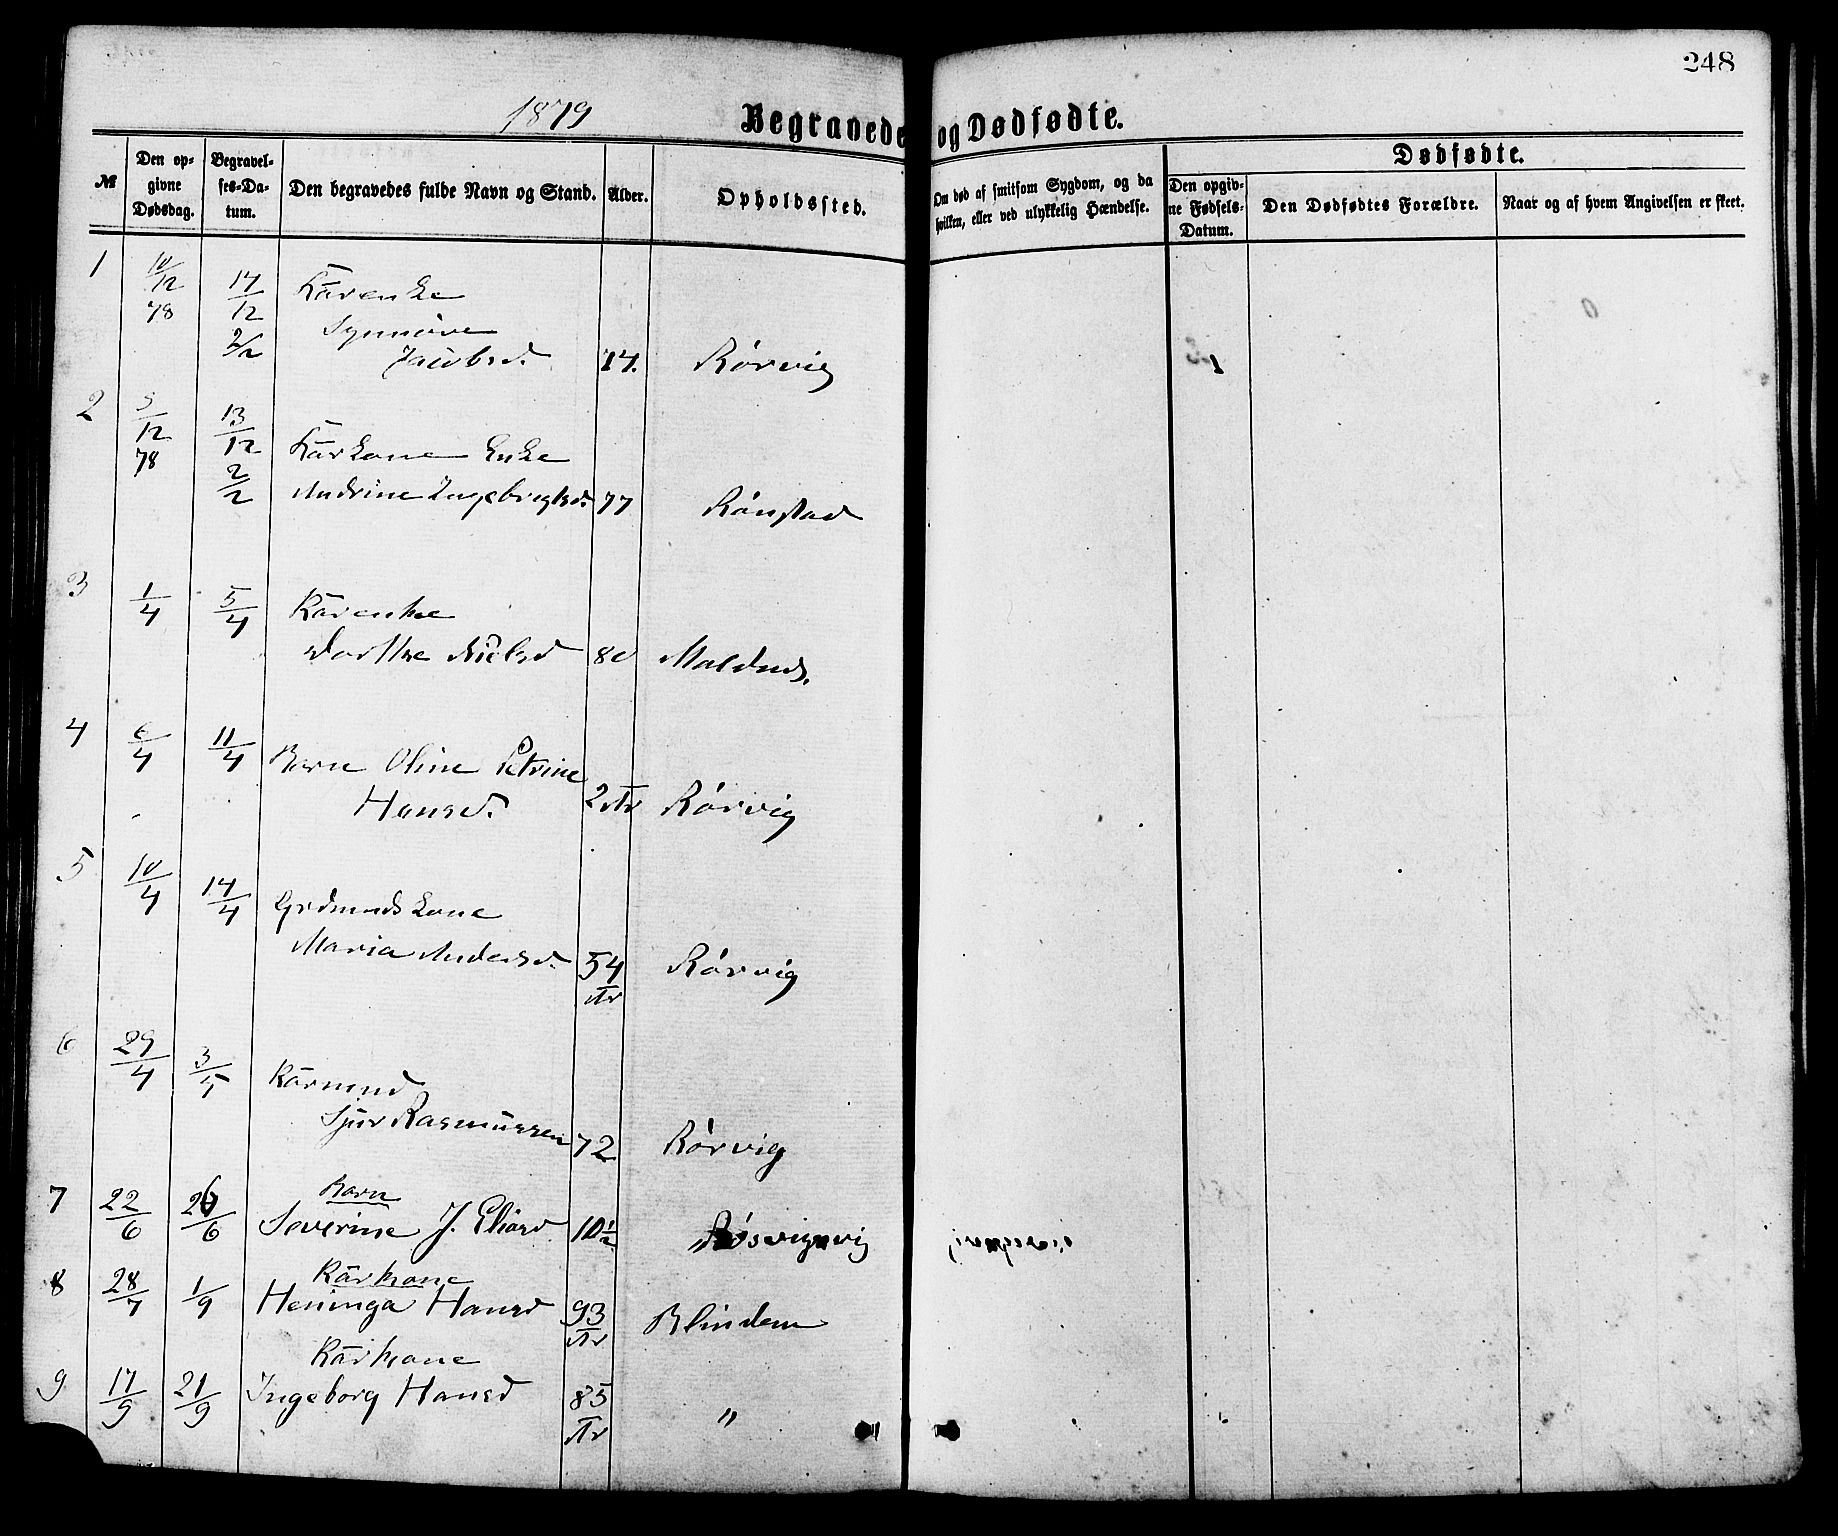 248
1879
Begravede og Dødfødte.
№
Den op-
givne
Dødsdag.
Begravel-
ses-Da-
tum.
Den begravedes fulde Navn og Stand.
Alder.
Opholdssted.
Om død af smitsom Sygdom, og da
hvilken, eller ved ulykkelig Hændelse.
Dødfødte.
Den opgiv-
ne Fødsels-
Datum.
Den Dødfødtes Forældre.
Naar og af hvem Angivelsen er skeet.
1 10/12 78 17/12 2/2 Kårenke
Synnöve
Jacobsd. 74. Rörvig
2 5/12 78 13/12 2/2 Kårkone Enke
Andrine Ingebrigtsd. 77 Rönstad
3 1/4 5/4 Kårenke
Dorthe Nielsd 80
4 6/4 11/4 Barn Oline Petrine
Hansd. 2 Ar Rörvig
5 10/4 14/4 Grdmands Kone
Maria Andersd. 54 Ar Rörvig
6 29/4 3/5 Kårmand
Sjur Rasmussen 72 Rörvig
7 22/6 26/6 Barn
Severine J. Eliasd. 10 1/2 Røsvigvig
8 28/7 1/9 Kårkone
Heninga Hansd 93 Ar Blindem
9 17/9 21/9 Kårkone
Ingeborg Hansd 85 Ar "